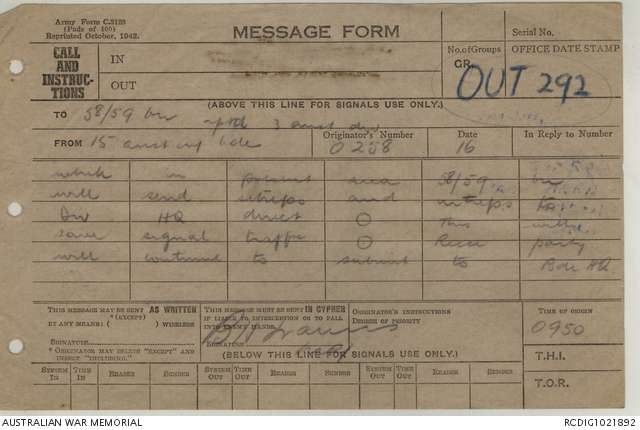 Army Form C.2128
(Pads of 100)
Reprinted October, 1942.
MESSAGE FORM
Serial No.
CALL AND INSTRUC-TIONS
IN
OUT
No. of Groups
GR.
OFFICE DATE STAMP
OUT 292
(ABOVE THIS LINE FOR SIGNALS USE ONLY.)
TO 58/59 bn rptd 3 aust div
FROM 15 aust inf bde
Originator's Number
0258
Date
16
In Reply to Number
while in present area 58/59 bn
will send sitreps and intreps to
Div HQ direct O This will
save signal traffic O Recce party
will continue to submit to Bde HQ
THIS MESSAGE MAY BE SENT AS WRITTEN
*(EXCEPT)
BY ANY MEANS ( ) WIRELESS
SIGNATURE
* ORIGINATOR MAY DELETE "EXCEPT" AND
INSERT "INCLUDING."
THIS MESSAGE MUST BE SENT IN CYPHER
IF LIABLE TO INTERCEPTION OR TO FALL
INTO ENEMY HANDS.
SIGNATURE
ORIGINATOR'S INSTRUCTIONS
DEGREE OF PRIORITY
TIME OF ORIGIN
0950
(BELOW THIS LINE FOR SIGNALS USE ONLY.)
T.H.I.
T.O.R.
SYSTEM IN TIME IN READER SENDER SYSTEM OUT TIME OUT READER SENDER SYSTEM OUT TIME OUT READER SENDER
AUSTRALIAN WAR MEMORIAL
RCDIG1021892